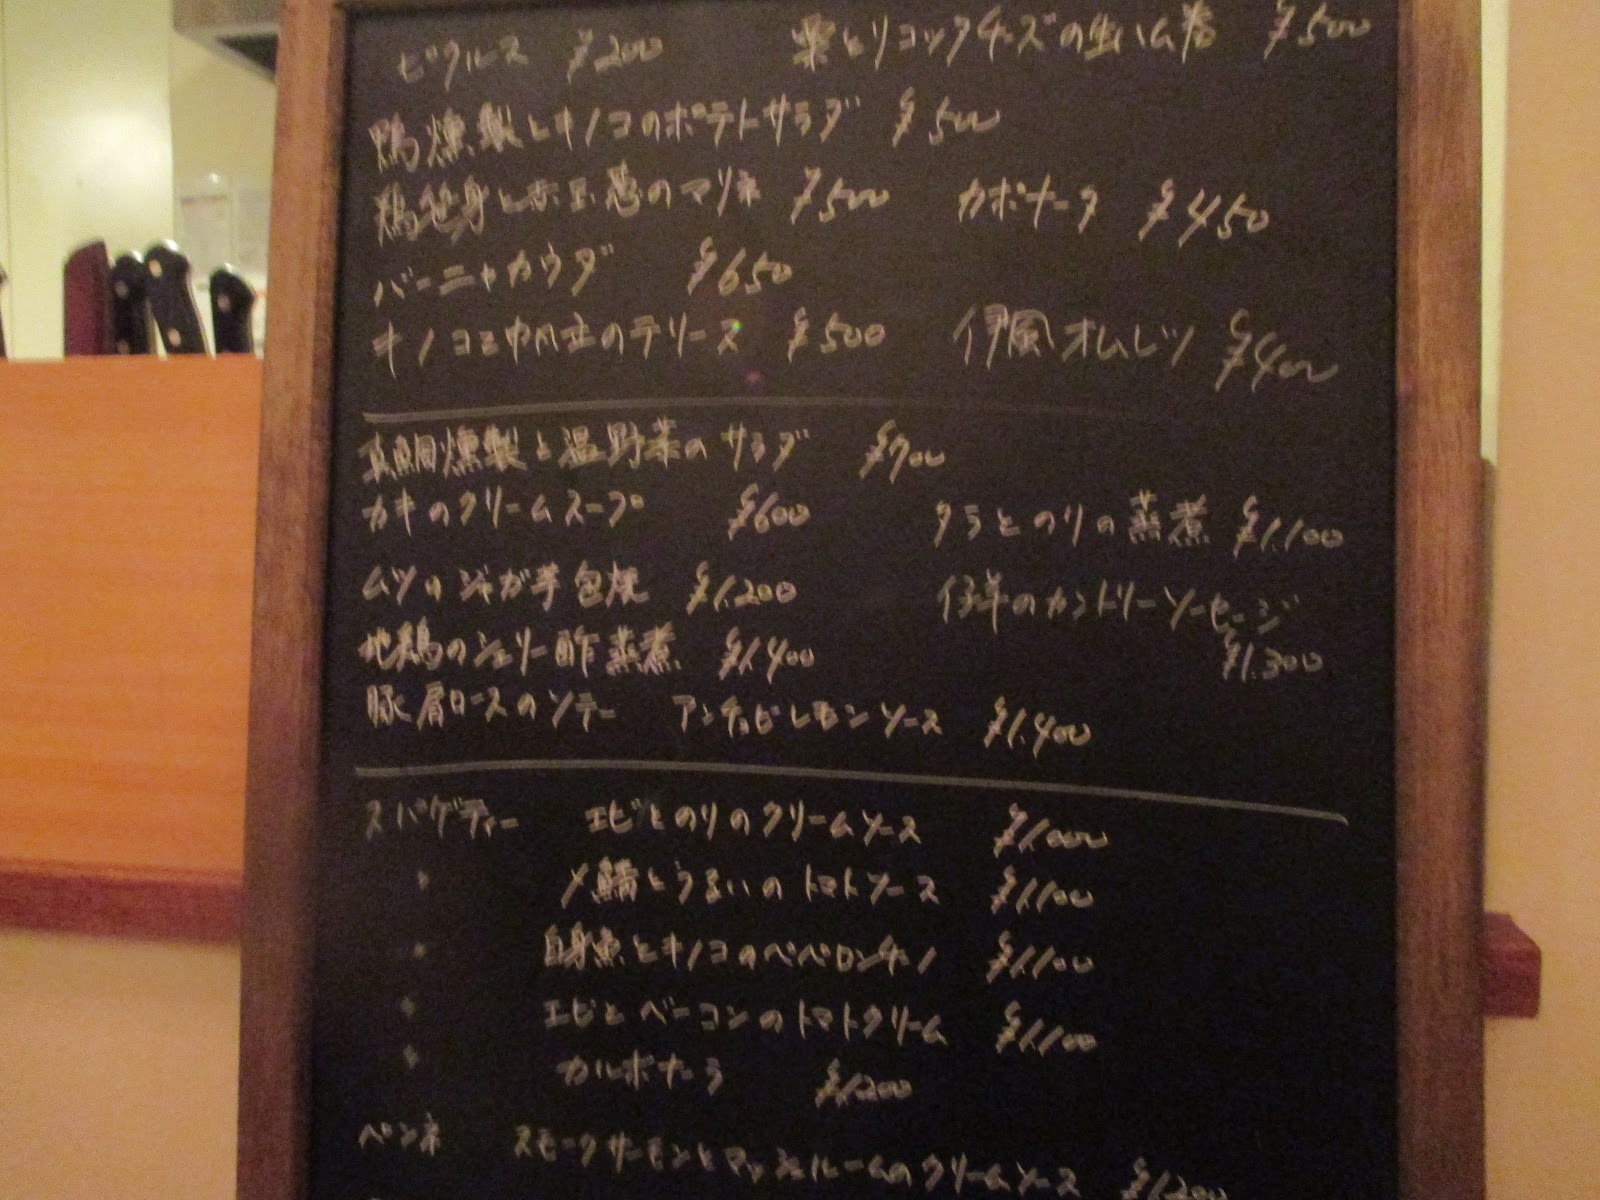 ピクルス ¥200 栗とリコッタチーズの生ハム巻 ¥500
鴨燻製とキノコのポテトサラダ ¥500
鶏笹身と赤玉葱のマリネ ¥500 カポナータ ¥450
バーニャカウダ ¥650
キノコと帆立のテリーヌ ¥500 伊風オムレツ ¥400
真鯛燻製と温野菜のサラダ ¥700
カキのクリームスープ ¥600 タラとのりの蒸煮 ¥1.100
ムツのジャガ芋包焼 ¥1.200 仔羊のカントリーソーセージ
¥1.300
地鶏のシェリー酢蒸煮 ¥1.400
豚肩ロースのソテー アンチョビレモンソース ¥1.400
スパゲティー エビとのりのクリームソース ¥1.000
〃 〆鯖とうるいのトマトソース ¥1.100
〃 白身魚とキノコのペペロンチーノ ¥1.100
〃 エビとベーコンのトマトクリーム ¥1.100
〃 カルボナーラ ¥1.200
ペンネ スモークサーモンとマッシュルームのクリームソース ¥1.200